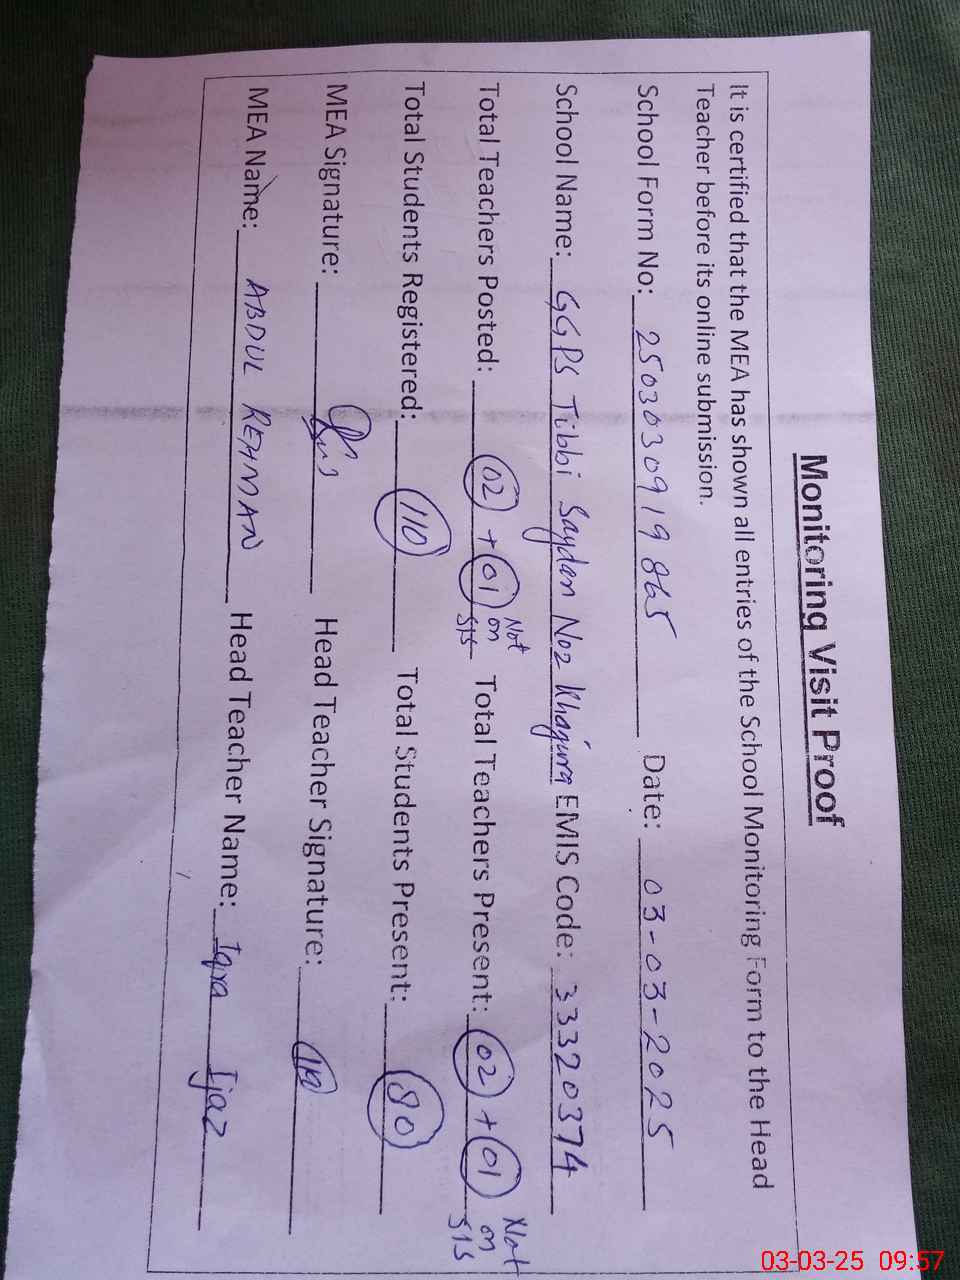 Monitoring Visit Proof
It is certified that the MEA has shown all entries of the School Monitoring Form to the Head
Teacher before its online submission.
School Form No: 250303091 9865 Date: 03-03-2025
School Name: GGPS Tibbi Saydan No2 Khajura EMIS Code: 33320374
Total Teachers Posted: 02 + 01 Not on SIS Total Teachers Present: 02 + 01 Not on SIS
Total Students Registered: 110 Total Students Present: 80
MEA Signature: Head Teacher Signature:
MEA Name: ABDUL REHMAN Head Teacher Name: Iqra Ijaz
03-03-25 09:57